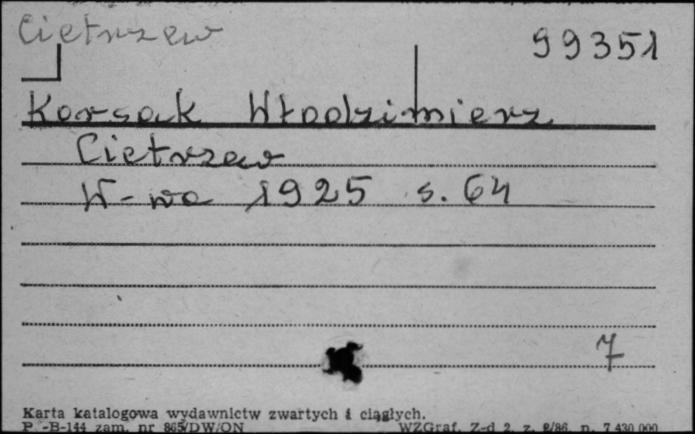 Cietrzew
99351
Korsak Włodzimierz
Cietrzew
W-wa 1925 s. 64
7
Karta katalogowa wydawnictw zwartych i ciągłych.
P. -B-144 zam. nr 865/DW/ON WZGraf. Z-d 2, z. 2/86. n. 7 430 000